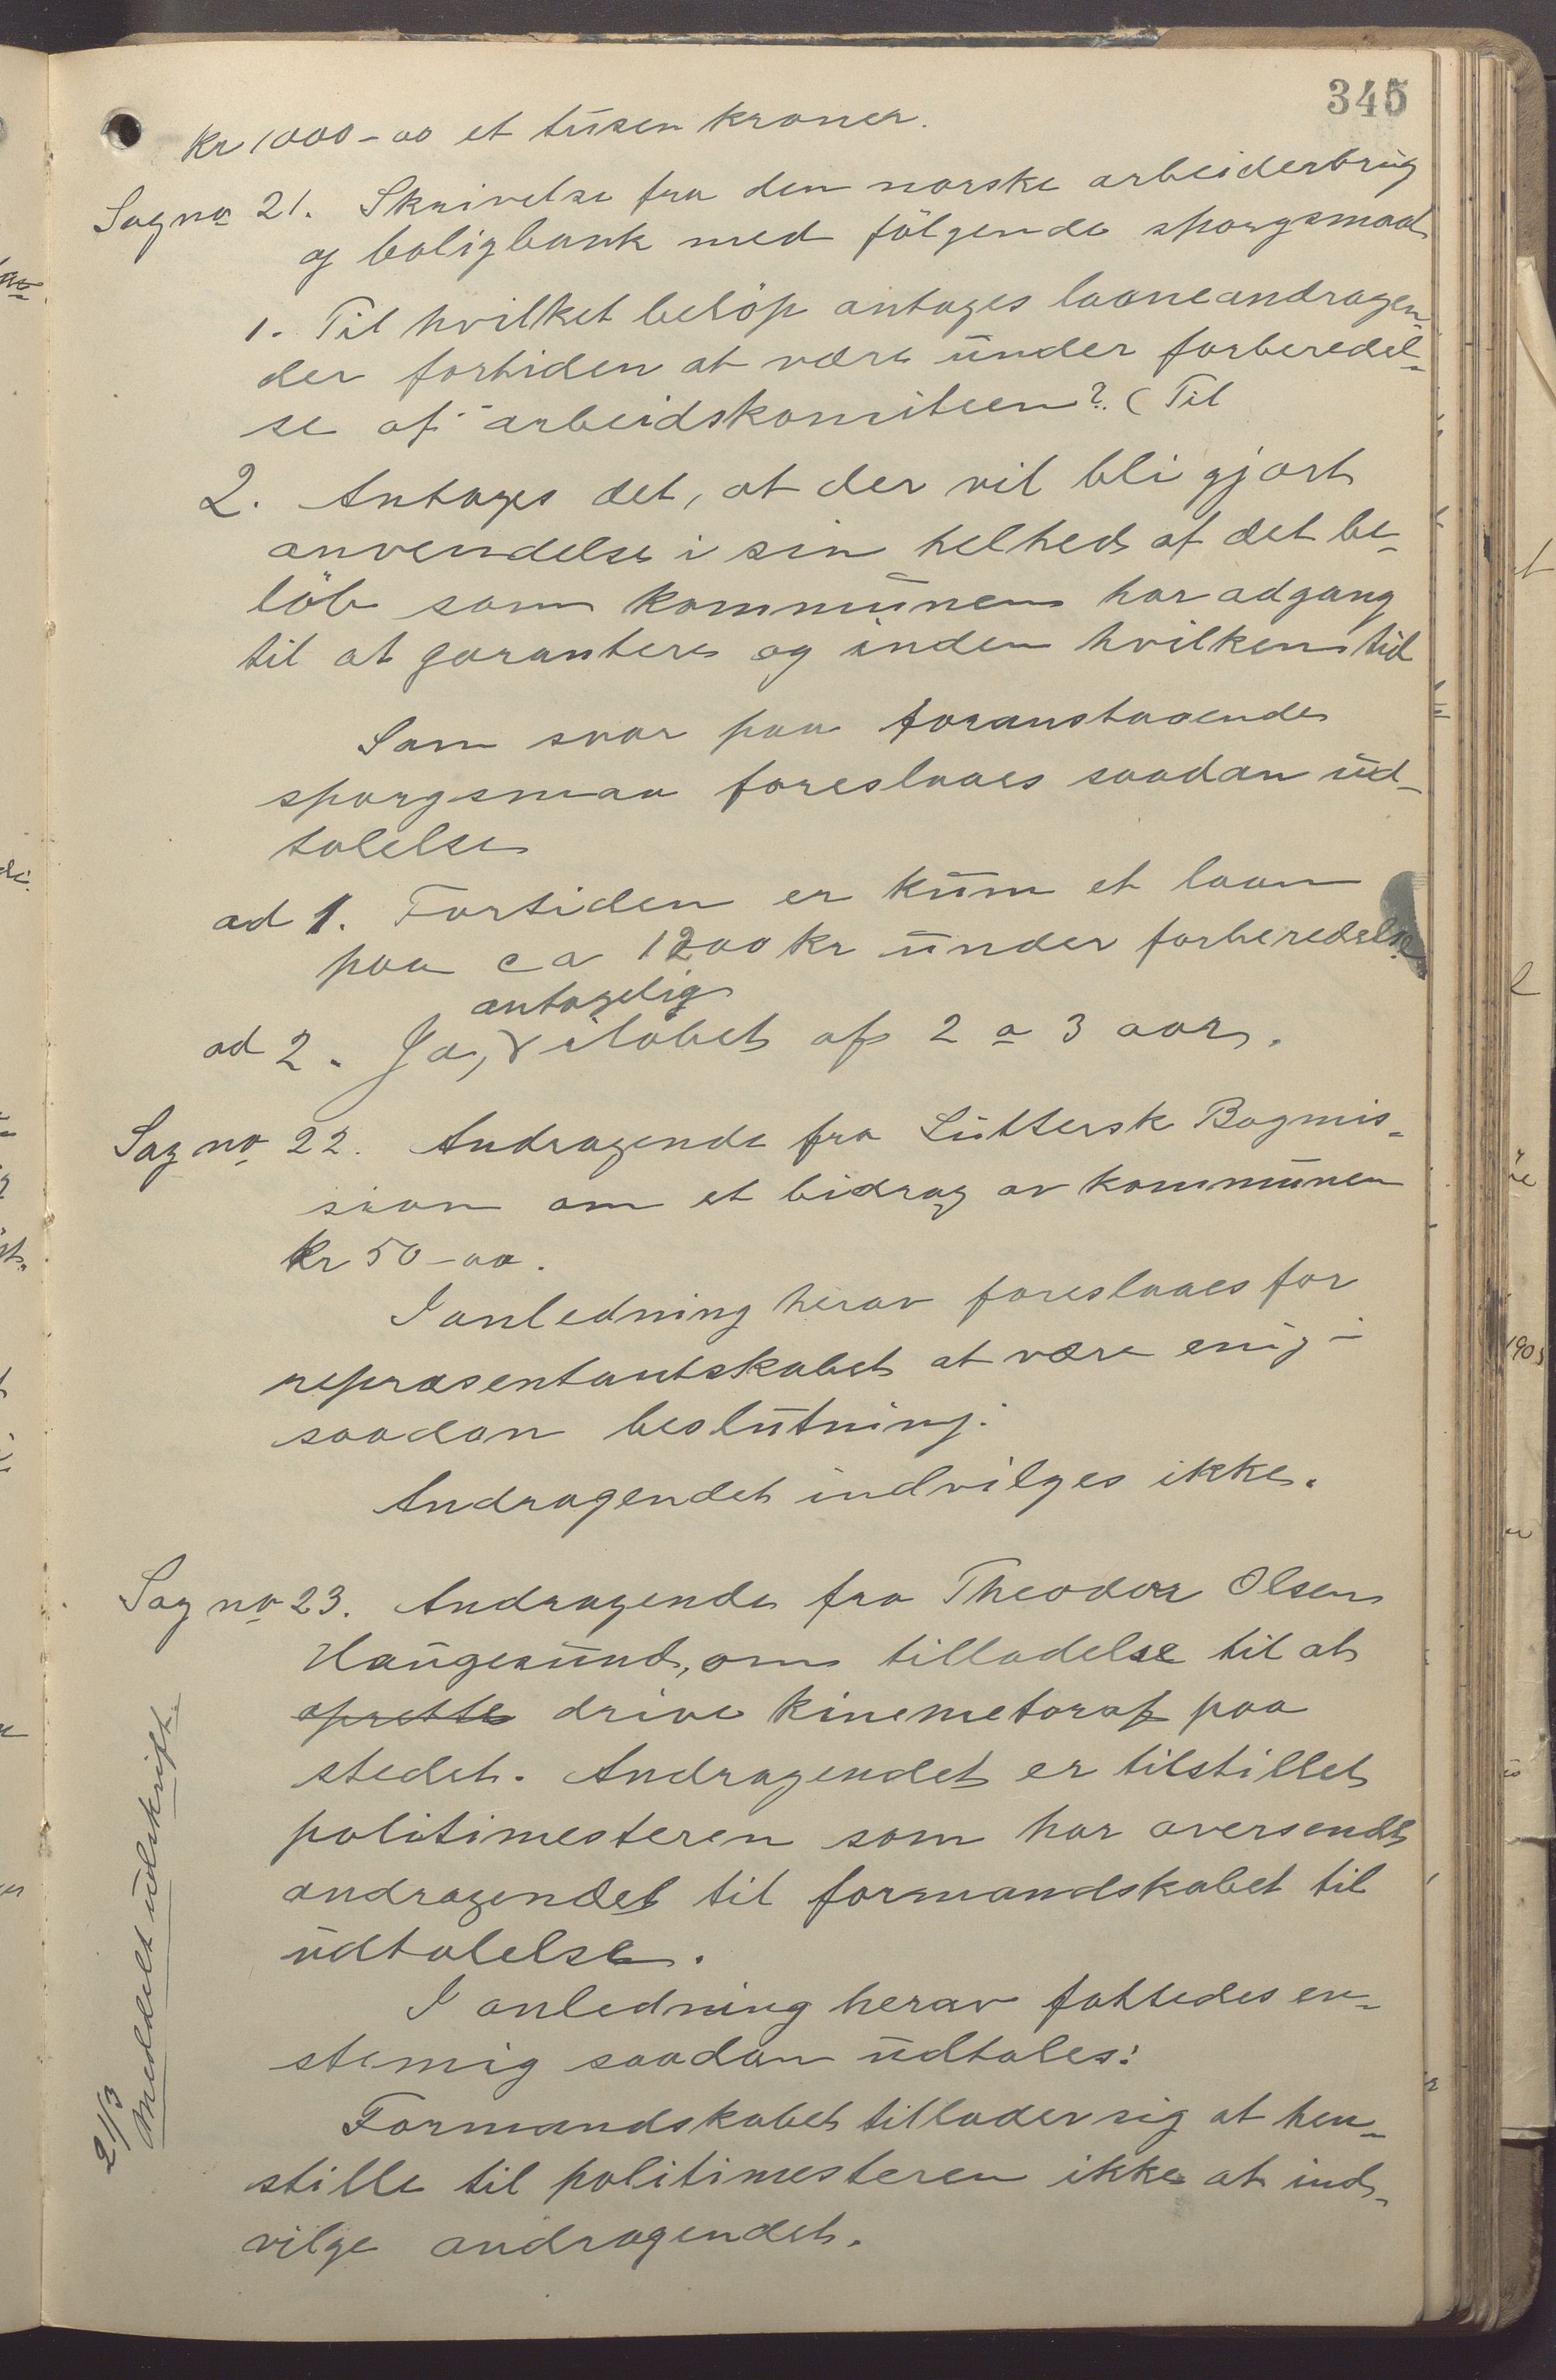 345
Kr 1000-00 et tusen kroner.
Sag no 21. Skrivelse fra den norske arbeiderbrug
og boligbank med følgende sporgsmaal
1. Til hvilket beløp antages laaneandragen-
der fortiden at være under forberedel-
se af arbeidskomiteen? (Til
2. Antages det, at der vil bli gjort
anvendelse i sin helhed af det be-
løb som kommunen har adgang
til at garantere og inden hvilken tid
Som svar paa foranstaaende
sporgsmaa foreslaaes saadan ud-
talelse
ad 1. Fortiden er kum et laan
paa ca 1200 kr under forberedelse
antagelig
ad 2. Ja, i løbet af 2 a 3 aar.
Sag no 22. Andragende fra Luttersk Bogmis-
sion om et bidrag av kommunen
Kr 50-00.
I anledning herav foreslaaes for
repræsentantskabet at være enig i
saadan beslutning:
Andragendet indvilges ikke.
Sag no 23. Andragende fra Theodor Olsen
Haugesund, om tilladelse til at
oprette drive kinemetoraf paa
stedet. Andragendet er tilstillet
politimesteren som har oversendt
andragendet til formandskabet til
udtalelse.
I anledning herav fattedes en-
stemig saadan udtales:
Formandskabet tillader sig at hen-
stille til politimesteren ikke at ind-
vilge andragendet.
21/3
Meddelt udskrift.